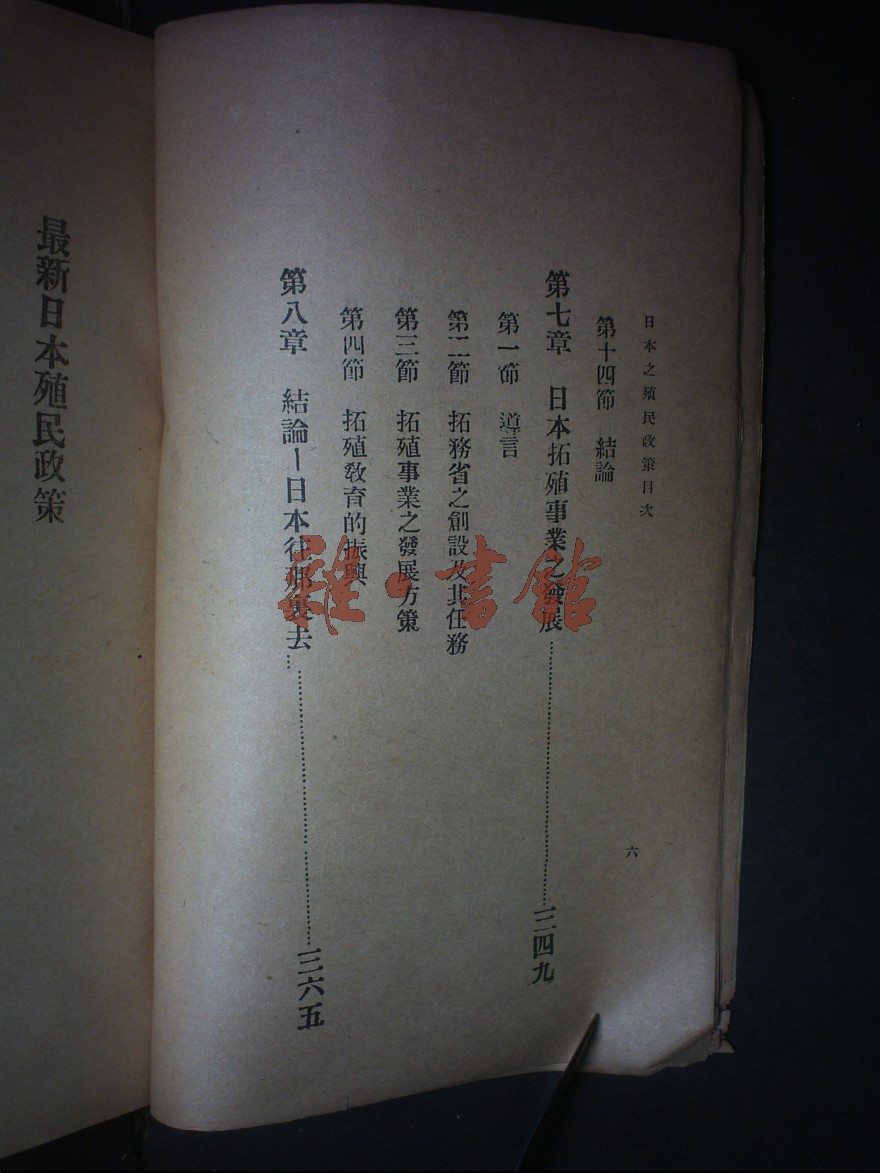 日本之殖民政策目次
六
第十四節 結論
第七章 日本拓殖事業之發展……三四九
第一節 導言
第二節 拓務省之創設及其任務
第三節 拓殖事業之發展方策
第四節 拓殖教育的振興
第八章 結論—日本往那裏去……三六五
最新日本殖民政策
書館